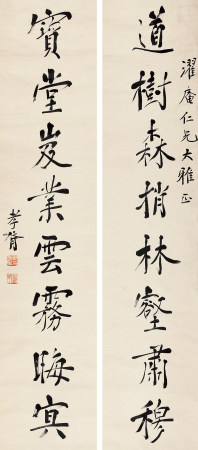 濯庵仁兄大雅正
道樹森梢林壑肅穆
寶堂岌業雲霧晦冥
孝胥